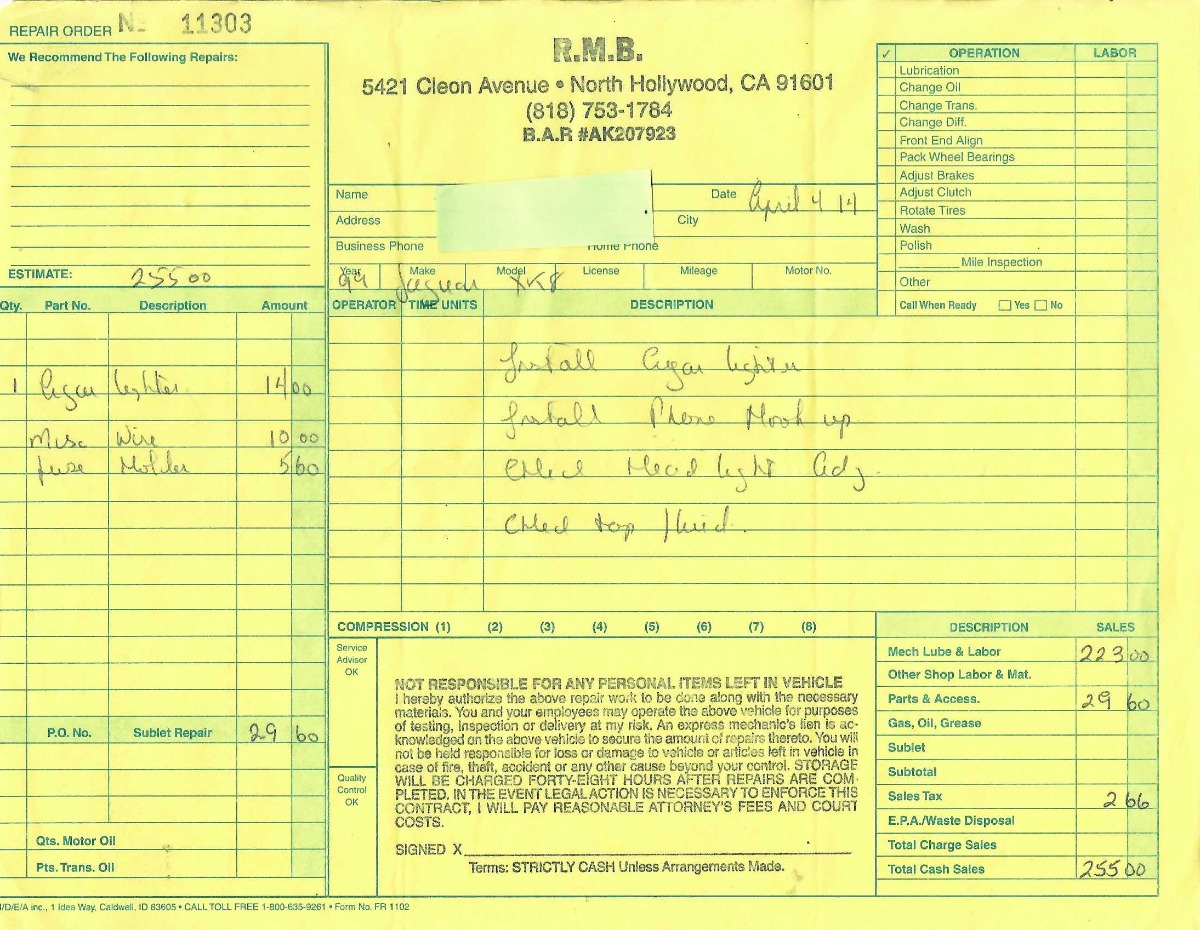 REPAIR ORDER No 11303
We Recommend The Following Repairs:
ESTIMATE: 255 00
R.M.B.
5421 Cleon Avenue • North Hollywood, CA 91601
(818) 753-1784
B.A.R #AK207923
Name
Date April 4 14
Address
City
Business Phone
Home Phone
Year Make Model License Mileage Motor No.
99 Jaguar XK8
✓ OPERATION LABOR
Lubrication
Change Oil
Change Trans.
Change Diff.
Front End Align
Pack Wheel Bearings
Adjust Brakes
Adjust Clutch
Rotate Tires
Wash
Polish
Mile Inspection
Other
Call When Ready Yes No
Qty. Part No. Description Amount
1 Cigar lighter 14 00
Misc Wire 10 00
fuse Holder 5 60
P.O. No. Sublet Repair 29 60
Qts. Motor Oil
Pts. Trans. Oil
OPERATOR TIME UNITS DESCRIPTION
Install Cigar lighter
Install Phone Hook up
CHecl Head light Adj.
CHecl top fluid.
COMPRESSION (1) (2) (3) (4) (5) (6) (7) (8)
Service
Advisor
OK
Quality
Control
OK
NOT RESPONSIBLE FOR ANY PERSONAL ITEMS LEFT IN VEHICLE
I hereby authorize the above repair work to be done along with the necessary
materials. You and your employees may operate the above vehicle for purposes
of testing, inspection or delivery at my risk. An express mechanic's lien is ac-
knowledged on the above vehicle to secure the amount of repairs thereto. You will
not be held responsible for loss or damage to vehicle or articles left in vehicle in
case of fire, theft, accident or any other cause beyond your control. STORAGE
WILL BE CHARGED FORTY-EIGHT HOURS AFTER REPAIRS ARE COM-
PLETED. IN THE EVENT LEGAL ACTION IS NECESSARY TO ENFORCE THIS
CONTRACT, I WILL PAY REASONABLE ATTORNEY'S FEES AND COURT
COSTS.
SIGNED X
Terms: STRICTLY CASH Unless Arrangements Made.
DESCRIPTION SALES
Mech Lube & Labor 223 00
Other Shop Labor & Mat.
Parts & Access. 29 60
Gas, Oil, Grease
Sublet
Subtotal
Sales Tax 2 66
E.P.A./Waste Disposal
Total Charge Sales
Total Cash Sales 255 00
I/D/E/A inc., 1 Idea Way, Caldwell, ID 83605 • CALL TOLL FREE 1-800-635-9261 • Form No. FR 1102